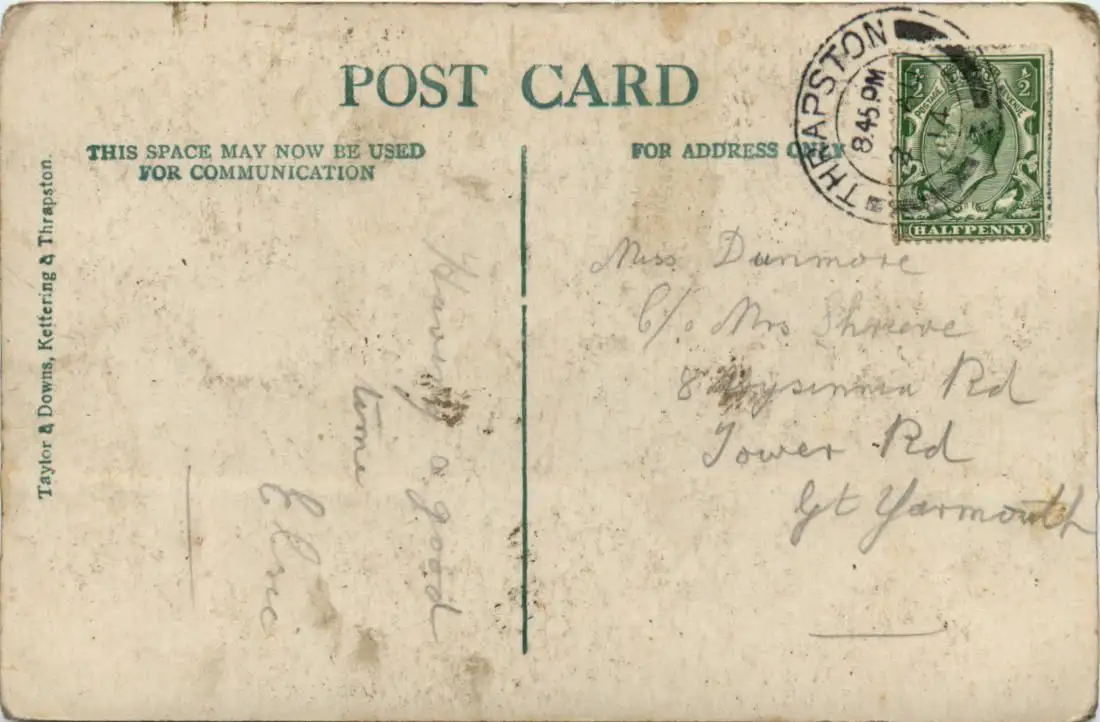 POST CARD
THIS SPACE MAY NOW BE USED
FOR COMMUNICATION
FOR ADDRESS ONLY
Taylor & Downs, Kettering & Thrapston.
THRAPSTON
8.45 PM
14
½ ½
POSTAGE REVENUE
HALFPENNY
Having a good
time
Miss Dunmore
C/o Mrs Shreeve
8 Rd
Tower Rd
Gt Yarmouth